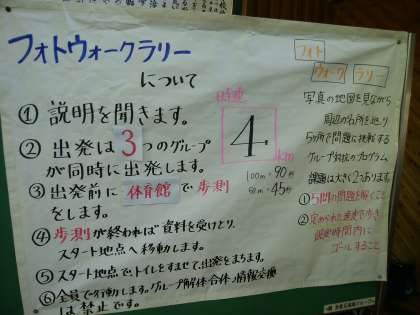 フォトウォークラリー
について
① 説明を聞きます。
② 出発は3つのグループ
が同時に出発します。
③ 出発前に体育館で歩測
をします。
④ 歩測が終われば資料を受けとり、
スタート地点へ移動します。
⑤ スタート地点で、トイレをすませて、出発をまちます。
⑥ 全員で行動します。グループ解体・合体、情報交換
は禁止です。
時速
4
km
100m=90秒
50m=45秒
フォト
ウォーク
ラリー
写真の地図を見ながら
周辺の名所を巡り
5ヶ所で問題に挑戦する
グループ対抗のプログラム
課題は大きく2つあります。
① 5問の問題を解くこと
② 定められた速度で歩き
規定時間内に
ゴールすること